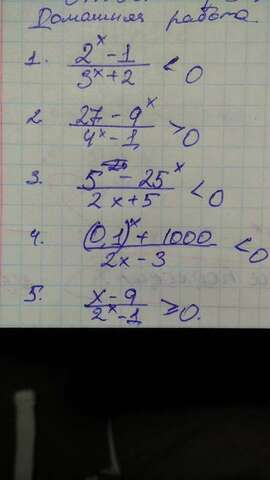 Домашняя работа
1. (2^x - 1)/(3^x + 2) < 0
2. (27 - 9^x)/(4^x - 1) > 0
3. (5 - 25^x)/(2x + 5) < 0
4. ((0,1)^x + 1000)/(2x - 3) < 0
5. (x - 9)/(2^x - 1) ≥ 0.